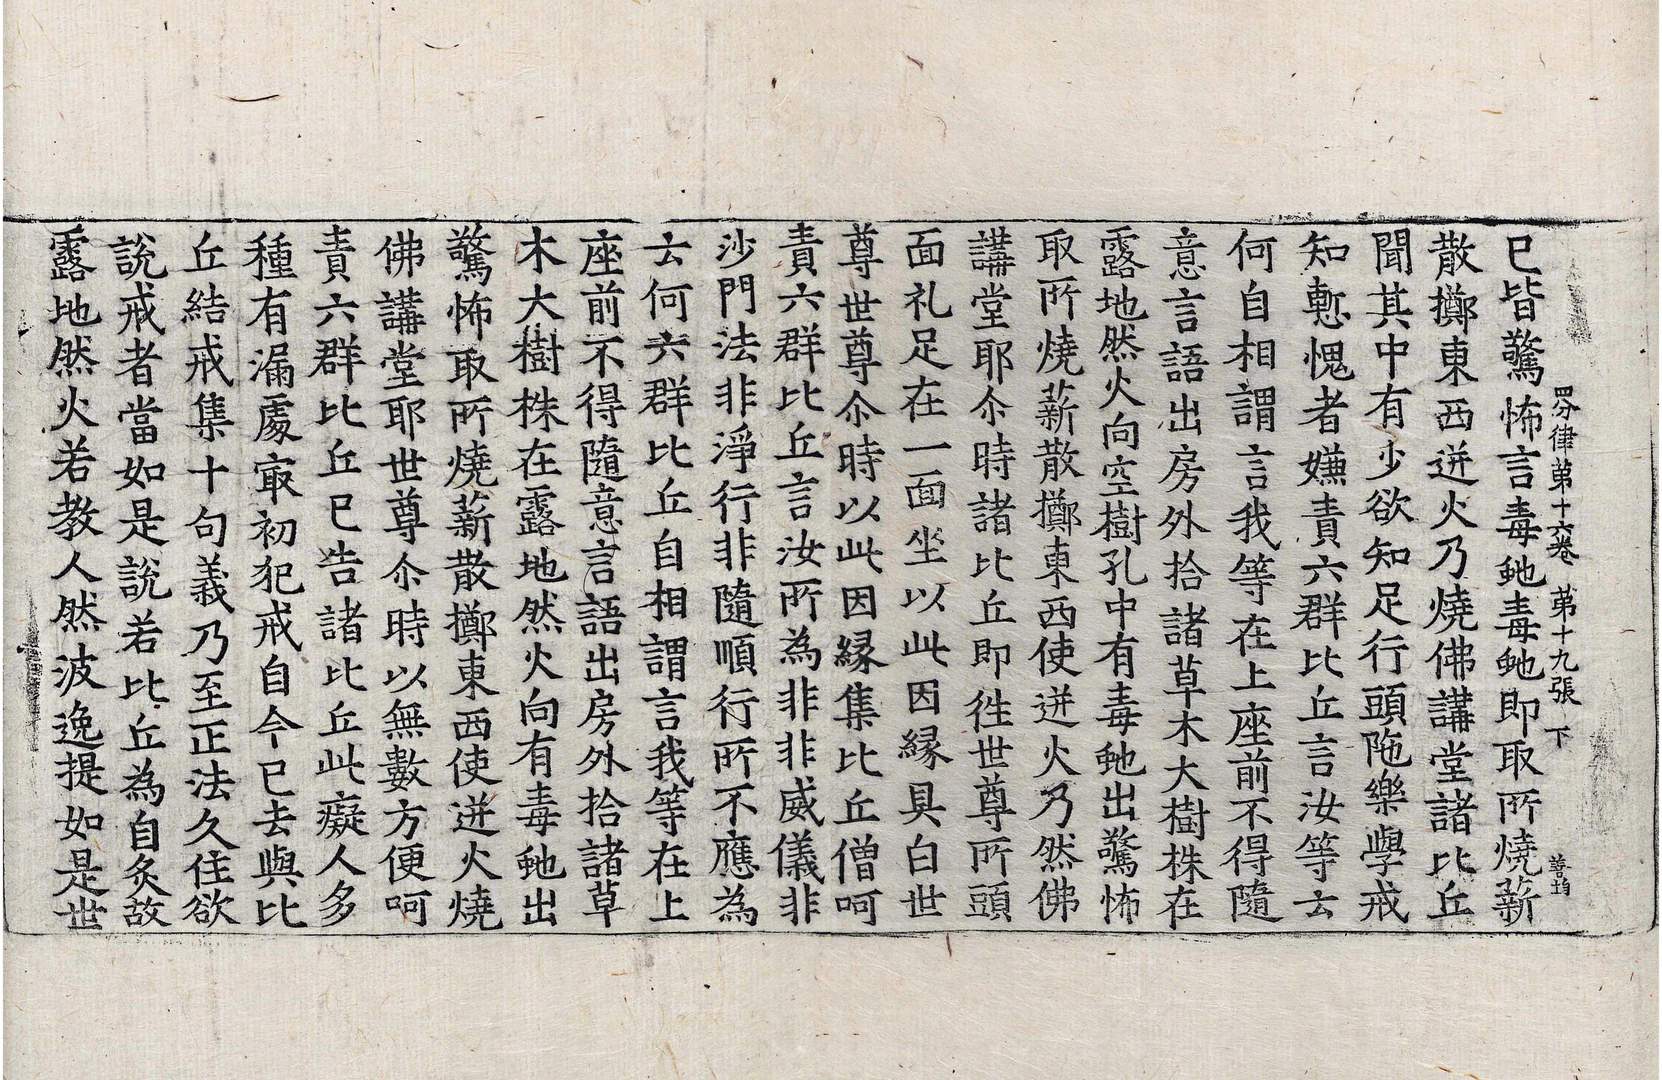 四分律第十六卷 第十九張 下
善均
已皆驚怖言毒虵毒虵即取所燒薪
散擲東西迸火乃燒佛講堂諸比丘
聞其中有少欲知足行頭陁樂學戒
知慙愧者嫌責六群比丘言汝等云
何自相謂言我等在上座前不得隨
意言語出房外拾諸草木大樹株在
露地然火向空樹孔中有毒虵出驚怖
取所燒薪散擲東西使迸火乃然佛
講堂耶尒時諸比丘即徃世尊所頭
面礼足在一面坐以此因縁具白世
尊世尊尒時以此因縁集比丘僧呵
責六群比丘言汝所為非非威儀非
沙門法非淨行非隨順行所不應為
云何六群比丘自相謂言我等在上
座前不得隨意言語出房外拾諸草
木大樹株在露地然火向有毒虵出
驚怖取所燒薪散擲東西使迸火燒
佛講堂耶世尊尒時以無數方便呵
責六群比丘已告諸比丘此癡人多
種有漏處㝡初犯戒自今已去與比
丘結戒集十句義乃至正法久住欲
說戒者當如是說若比丘為自炙故
露地然火若教人然波逸提如是世